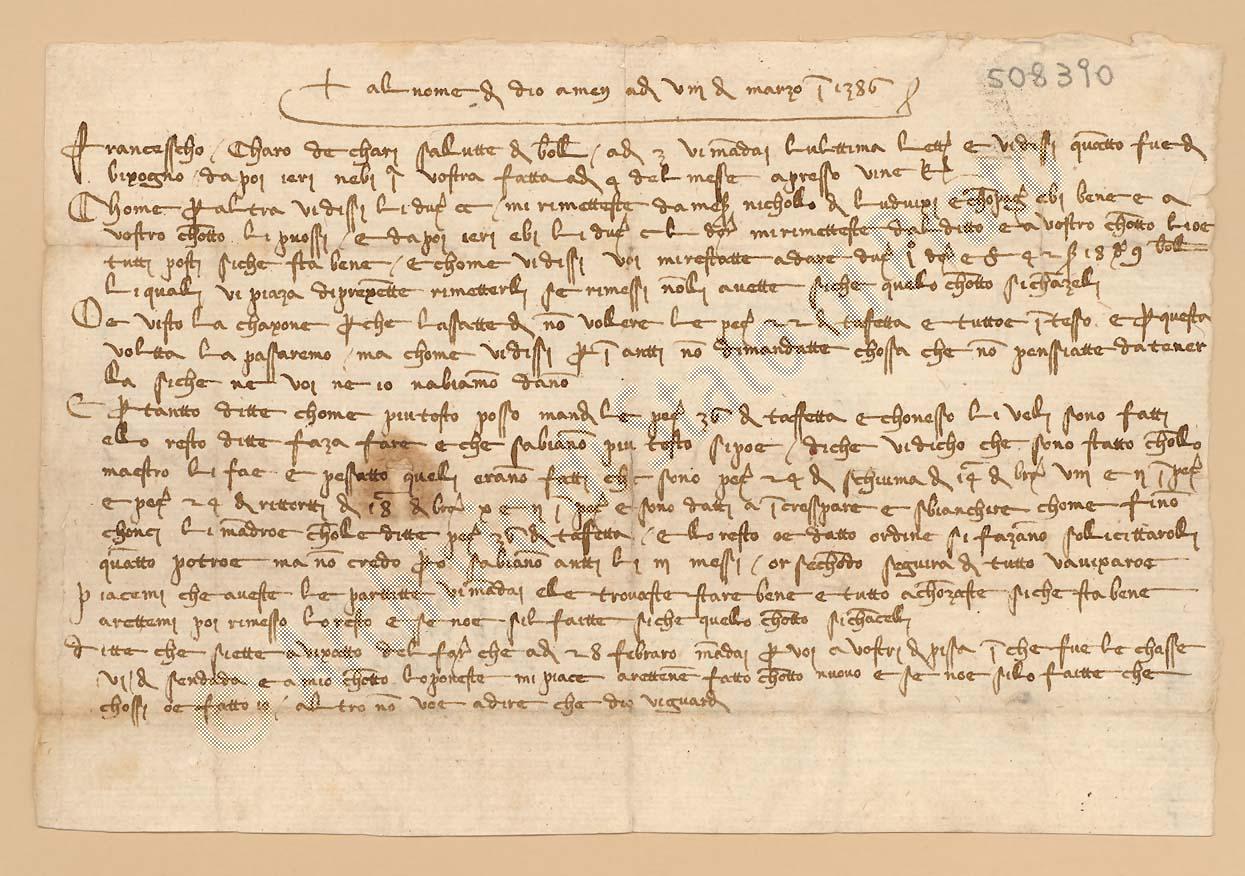 508390
+ al nome d dio amen adi viii d marzo ī 1386
Francesscho Charo de chari salutte d boll / adi 3 vi mādai l ulttima lettᵃ e vi dissi quātto fue d
bixogno / da poi ieri nebi ī vostra fatta adi 4 del messe apresso vine
Chome p altra vi dissi li duc cc mi rimetteste da mes nichollo d luduixi e chōp ebi bene e a
vostro chōtto li puossi / e da poi ieri ebi li duc cl dor mi rimetteste dal ditto e a vostro chōtto li oe
tutti posti siche sta bene / e chome vi dissi voi mi restatte a dare duc 18 9 boll
li quali vi piaza di prexētte rimetterli se rimessi nōli avette siche quello chōtto si chāzeli
Oe visto la chaxone p che lassatte d nō vollere le peç 22 d taffetta e tutto e ī tesso e p questa
voltta la passaremo / ma chome vi dissi p ī antti nō dimandatte chossa che nō penssiatte da tener
la siche ne voi ne io nabiamo dano
E p tantto ditte chome piu tosto posso mandi le peç 36 d taffetta e chonesso li veli sono fatti
ello resto ditte faza fare e che sabiano piu tosto si poe / diche vi dicho che sono statto chollo
maestro li fae e pessatto queli erano fatti che sono peç 24 d schiuma d 14 d brᵃ viii e n ī peç
e peç 24 d rittortti d 18 d brᵃ x e n ī peç e sono datti a ī cresspare e sbianchire chome srāno
chonci li mādroe cholle ditte peç 36 d taffetta / ello resto oe datto ordine si fazano sollicittaroli
quātto potroe ma nō credo p sabiano antti li iii messi / or sechōdo seguira d tutto vavixaroe
piacemi che aveste le partitte vi mādai e le trovaste stare bene e tutto achōzaste siche sta bene
arettemi poi rimesso lo resto e se noe sil faitte siche quello chōtto si chāceli
ditte che siette avixatto del far che adi 28 febraro mādai p voi a vostri d pissa ī che fue le chasse
vi d sendada e a mio chōtto lo poneste mi piace arettene fatto chōtto nuovo e se noe silo faitte che
chossi oe fatto io / altro nō voe a dire che dio vi guardi
© Archivio di Stato di Prato